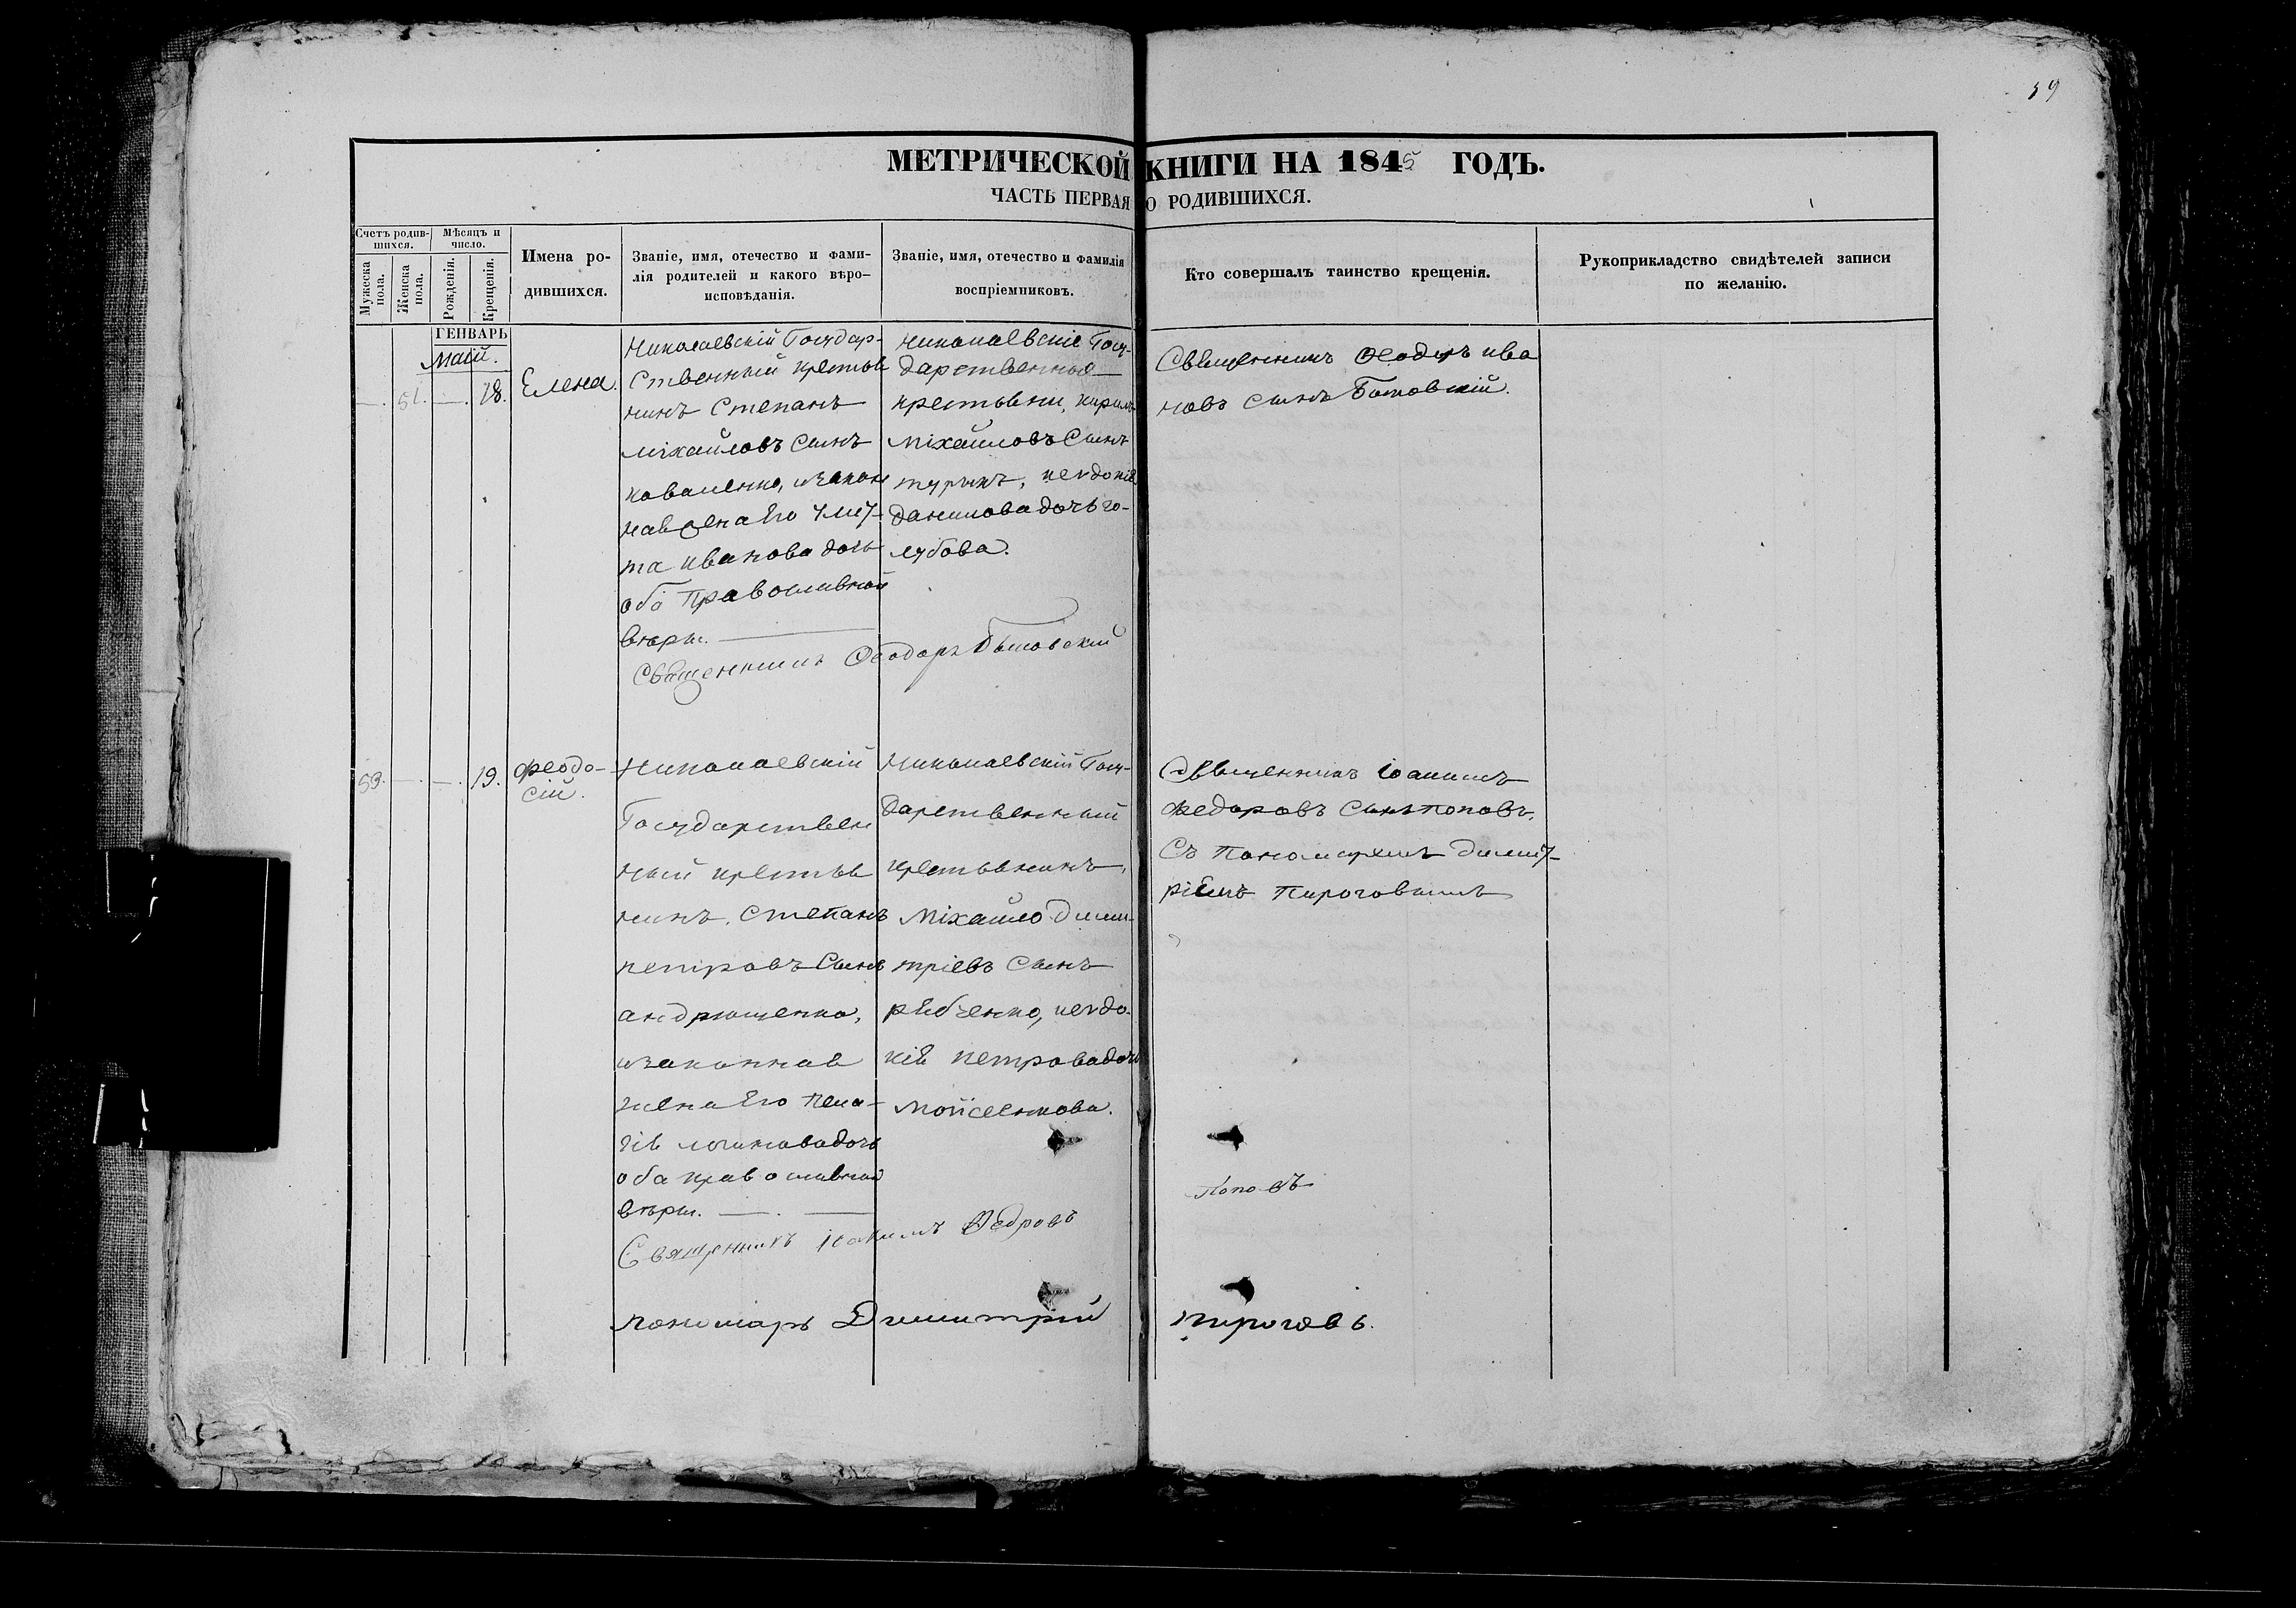 59
МЕТРИЧЕСКОЙ КНИГИ НА 1845 ГОДЪ.
ЧАСТЬ ПЕРВАЯ О РОДИВШИХСЯ.
Счетъ родив-
шихся.
Мѣсяцъ и
число.
Мужеска
пола.
Женска
пола.
Рожденія.
Крещенія.
Имена ро-
дившихся.
Званіе, имя, отечество и фами-
лія родителей и какого вѣро-
исповѣданія.
Званіе, имя, отечество и фамилія
воспріемниковъ.
Кто совершалъ таинство крещенія.
Рукоприкладство свидѣтелей записи
по желанію.
ГЕНВАРЬ
Маій.
51.
18.
Елена.
Николаевскій Государ-
ственный крестья
нинъ Степанъ
міхайловъ сынъ
коваленко, изакон
ная жена Его
та иванова дочь
оба православной
вѣры.
николаевскіе Госу-
дарственныя
крестьяни, кирилъ
міхайловъ Сынъ
турикъ, иевдокія
данилова дочь го-
лубова.
Священникъ Ѳеодоръ ива
новъ сынъ Бытовскій.
Священникъ Ѳеодоръ Бытовский
53.
19.
феодо-
сій.
Николаевскій
Государствен
ный крестья
нинъ, Степанъ
петровъ Сынъ
андрющенко,
изаконная
жена Его пела-
гія логинова дочь
оба православной
вѣры.
Николаевскій Госу-
дарственный
крестьянинъ,
Міхайло дими-
тріевъ Сынъ
рябченко, иевдо-
кія петрова дочь
мойсеенкова.
Священникъ Іоакимъ
Федоровъ Сынъ поповъ,
Съ Пономаремъ димит-
ріемъ Пироговымъ
Священникъ Іоакимъ Ѳедровъ Поповъ
пономарь Димитрій пироговъ.